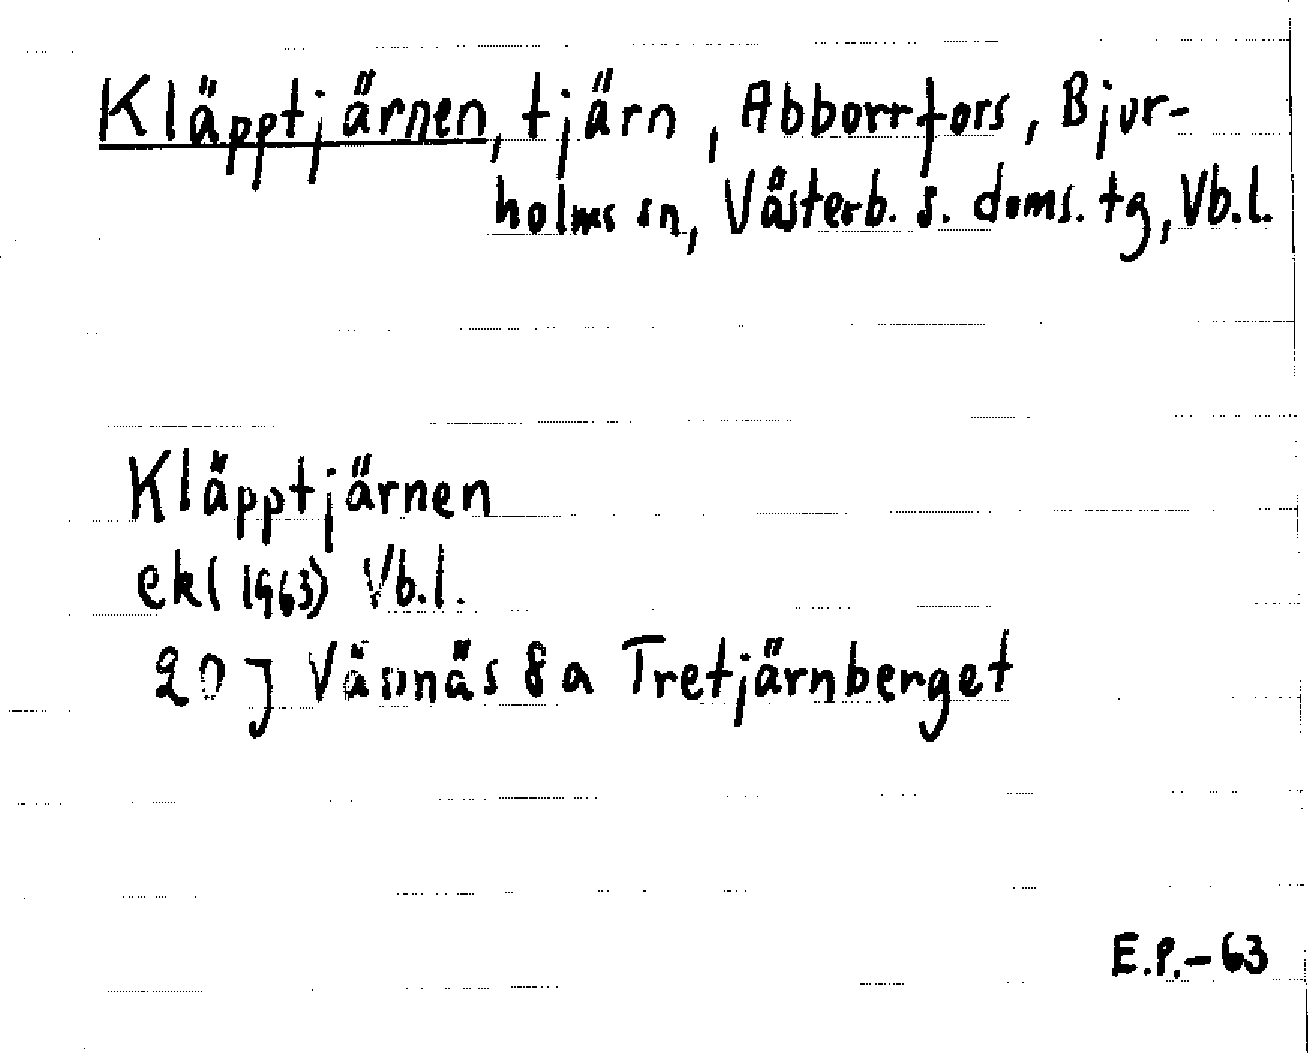 Kläpptjärnen, tjärn, Abborrfors, Bjur-
holms sn, Västerb. s. doms. tg, Vb.l.
Kläpptjärnen
ekl (1963) Vb.l.
20J Vännäs 8a Tretjärnberget
E.P.-63